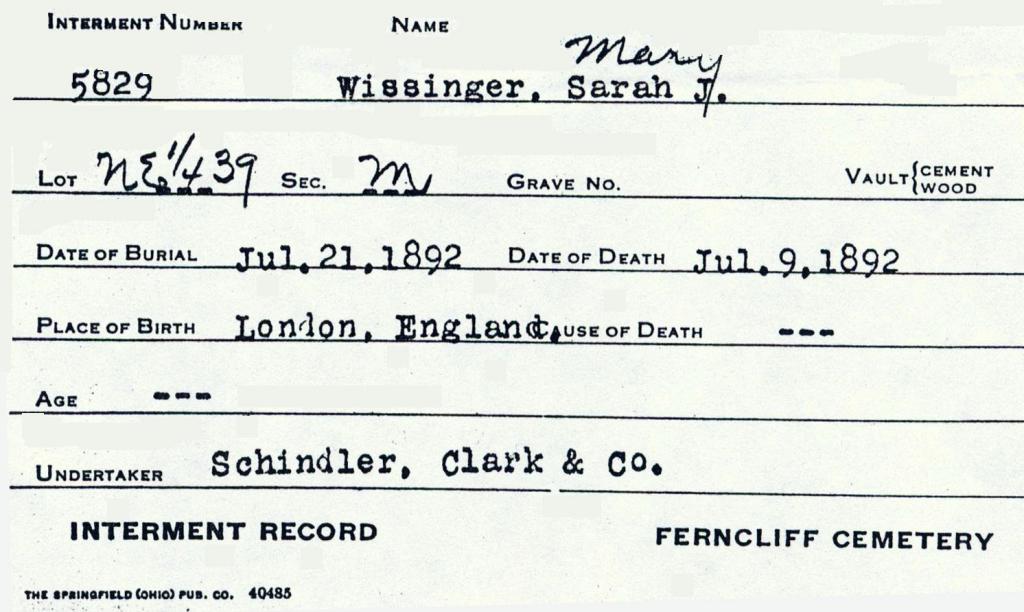 INTERMENT NUMBER NAME
Mary
5829 Wissinger, Sarah J.
LOT NE 1/4 39 SEC. M GRAVE NO. VAULT { CEMENT
WOOD
DATE OF BURIAL Jul. 21, 1892 DATE OF DEATH Jul. 9, 1892
PLACE OF BIRTH London, England, CAUSE OF DEATH ---
AGE ---
UNDERTAKER Schindler, Clark & Co.
INTERMENT RECORD FERNCLIFF CEMETERY
THE SPRINGFIELD (OHIO) PUB. CO. 40485